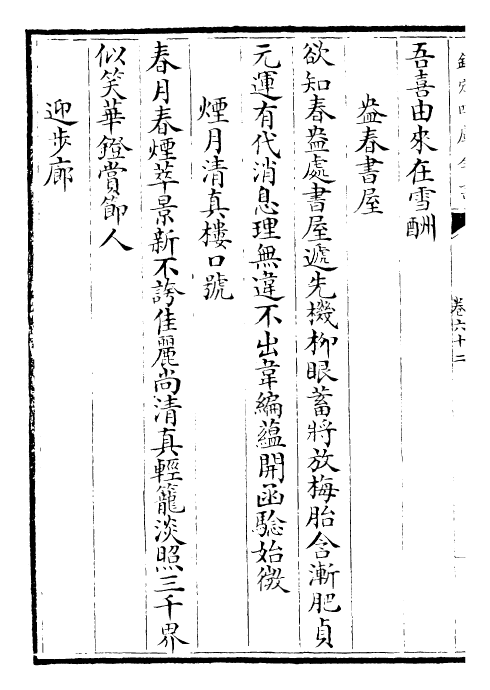 欽定四庫全書
卷六十二
吾喜由來在雪酬
盎春書屋
欲知春盎處書屋遞先機柳眼蓄將放梅胎含漸肥貞
元運有代消息理無違不出韋編蘊開函驗始微
煙月清真樓口號
春月春煙萃景新不誇佳麗尚清真輕籠淡照三千界
似笑華鐙賞節人
迎步廊